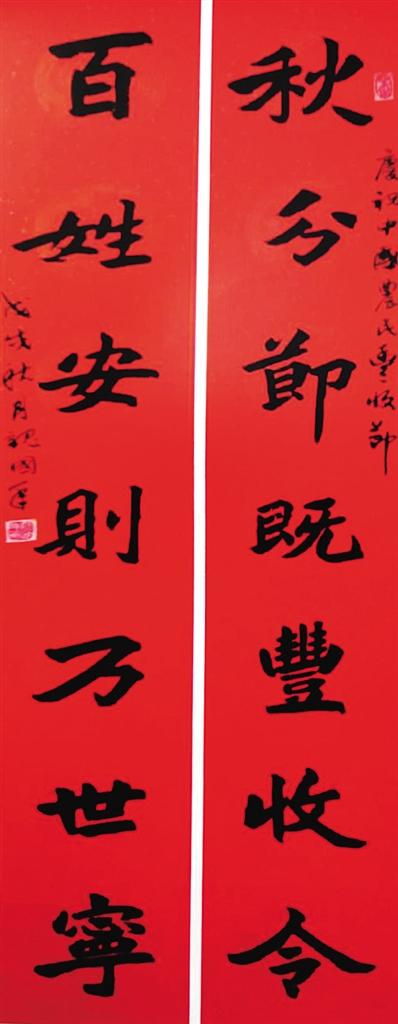 慶祝中國農民豐收節
秋分節既豐收令
百姓安則万世寧
戊戌秋月魏國